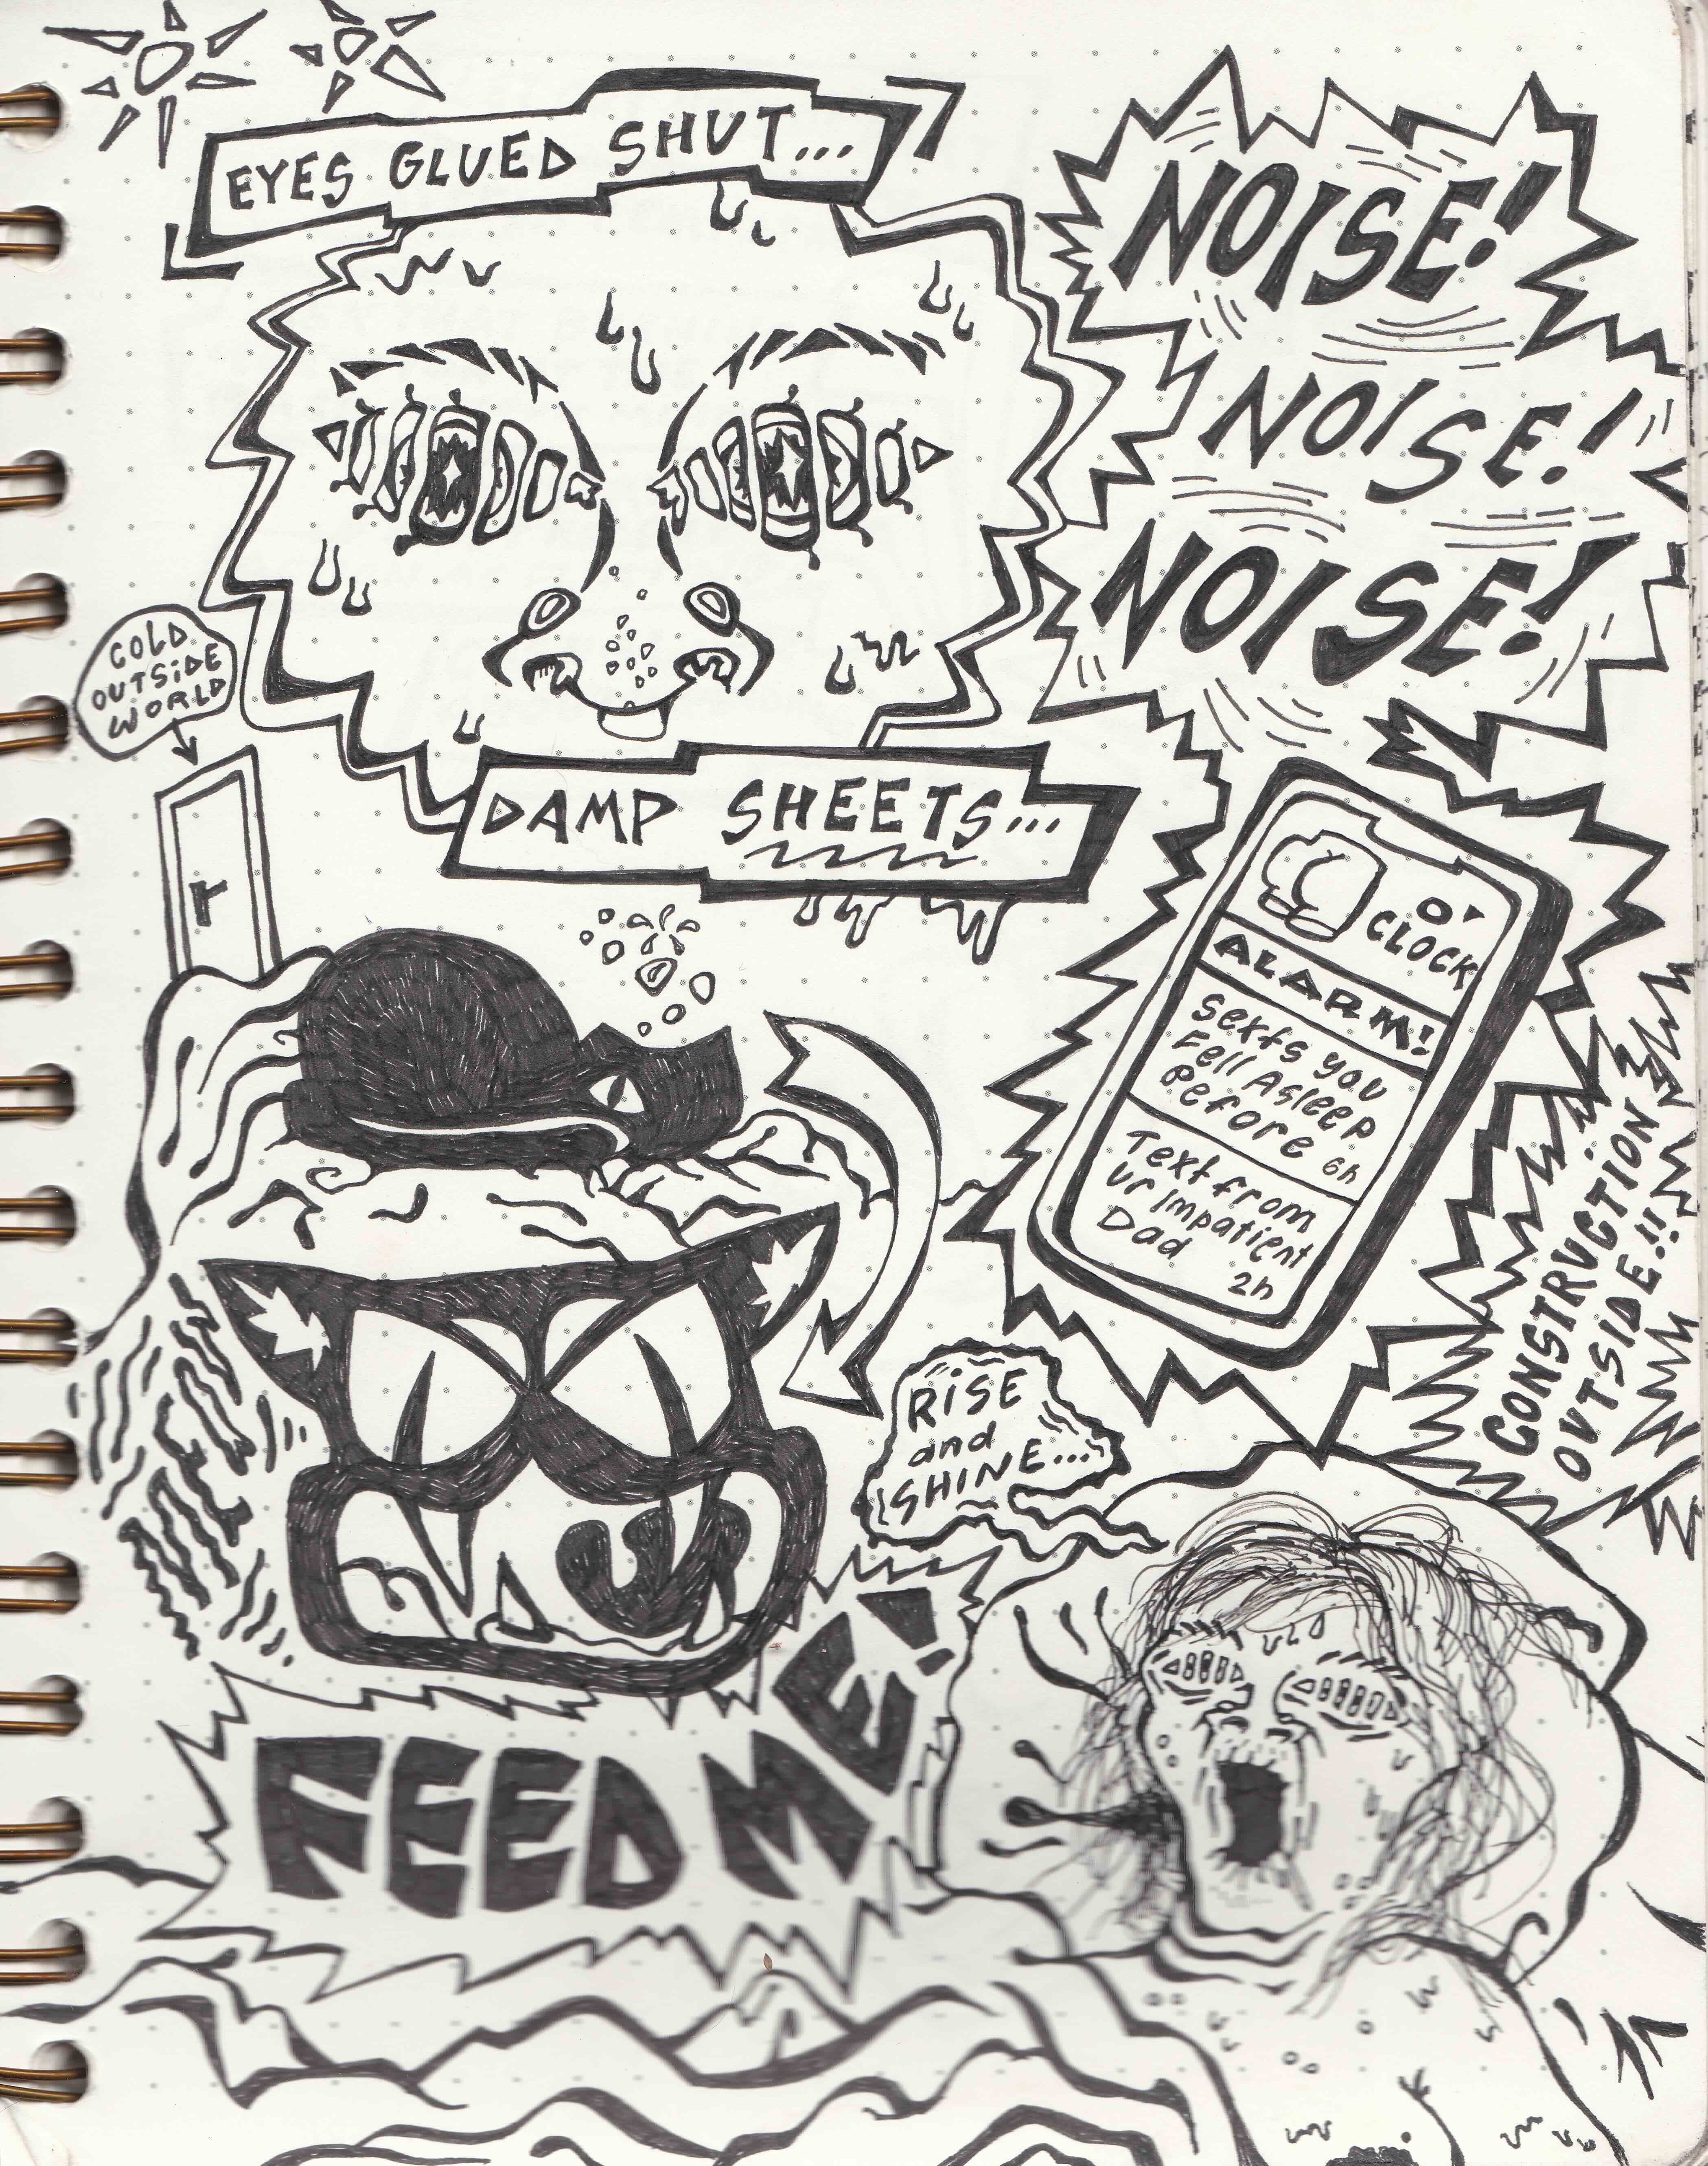 EYES GLUED SHUT...
NOISE!
NOISE!
NOISE!
COLD
OUTSiDE
WORLD
DAMP SHEETS...
O'
CLOCK
ALARM!
Sexts you
Fell Asleep
Before 6h
Text from
ur Impatient
Dad
2h
CONSTRUCTION
OUTSIDE!!
RiSE
and
SHINE...
FEED ME!